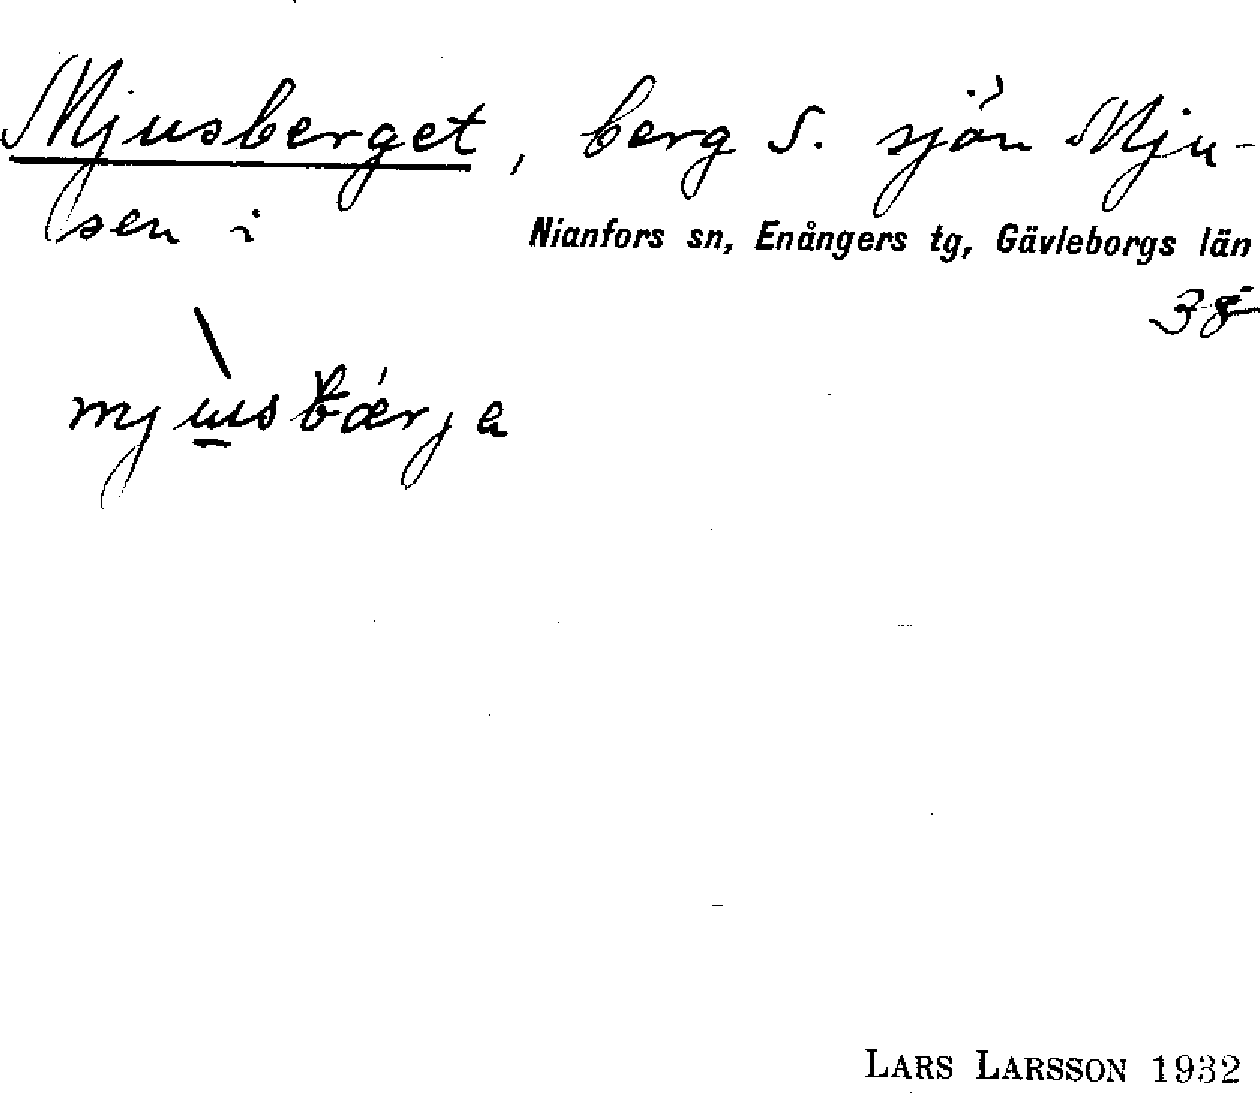 Mjusberget, berg S. sjön Mju-
sen i
Nianfors sn, Enångers tg, Gävleborgs län
mjùsbǽrja
LARS LARSSON 1932